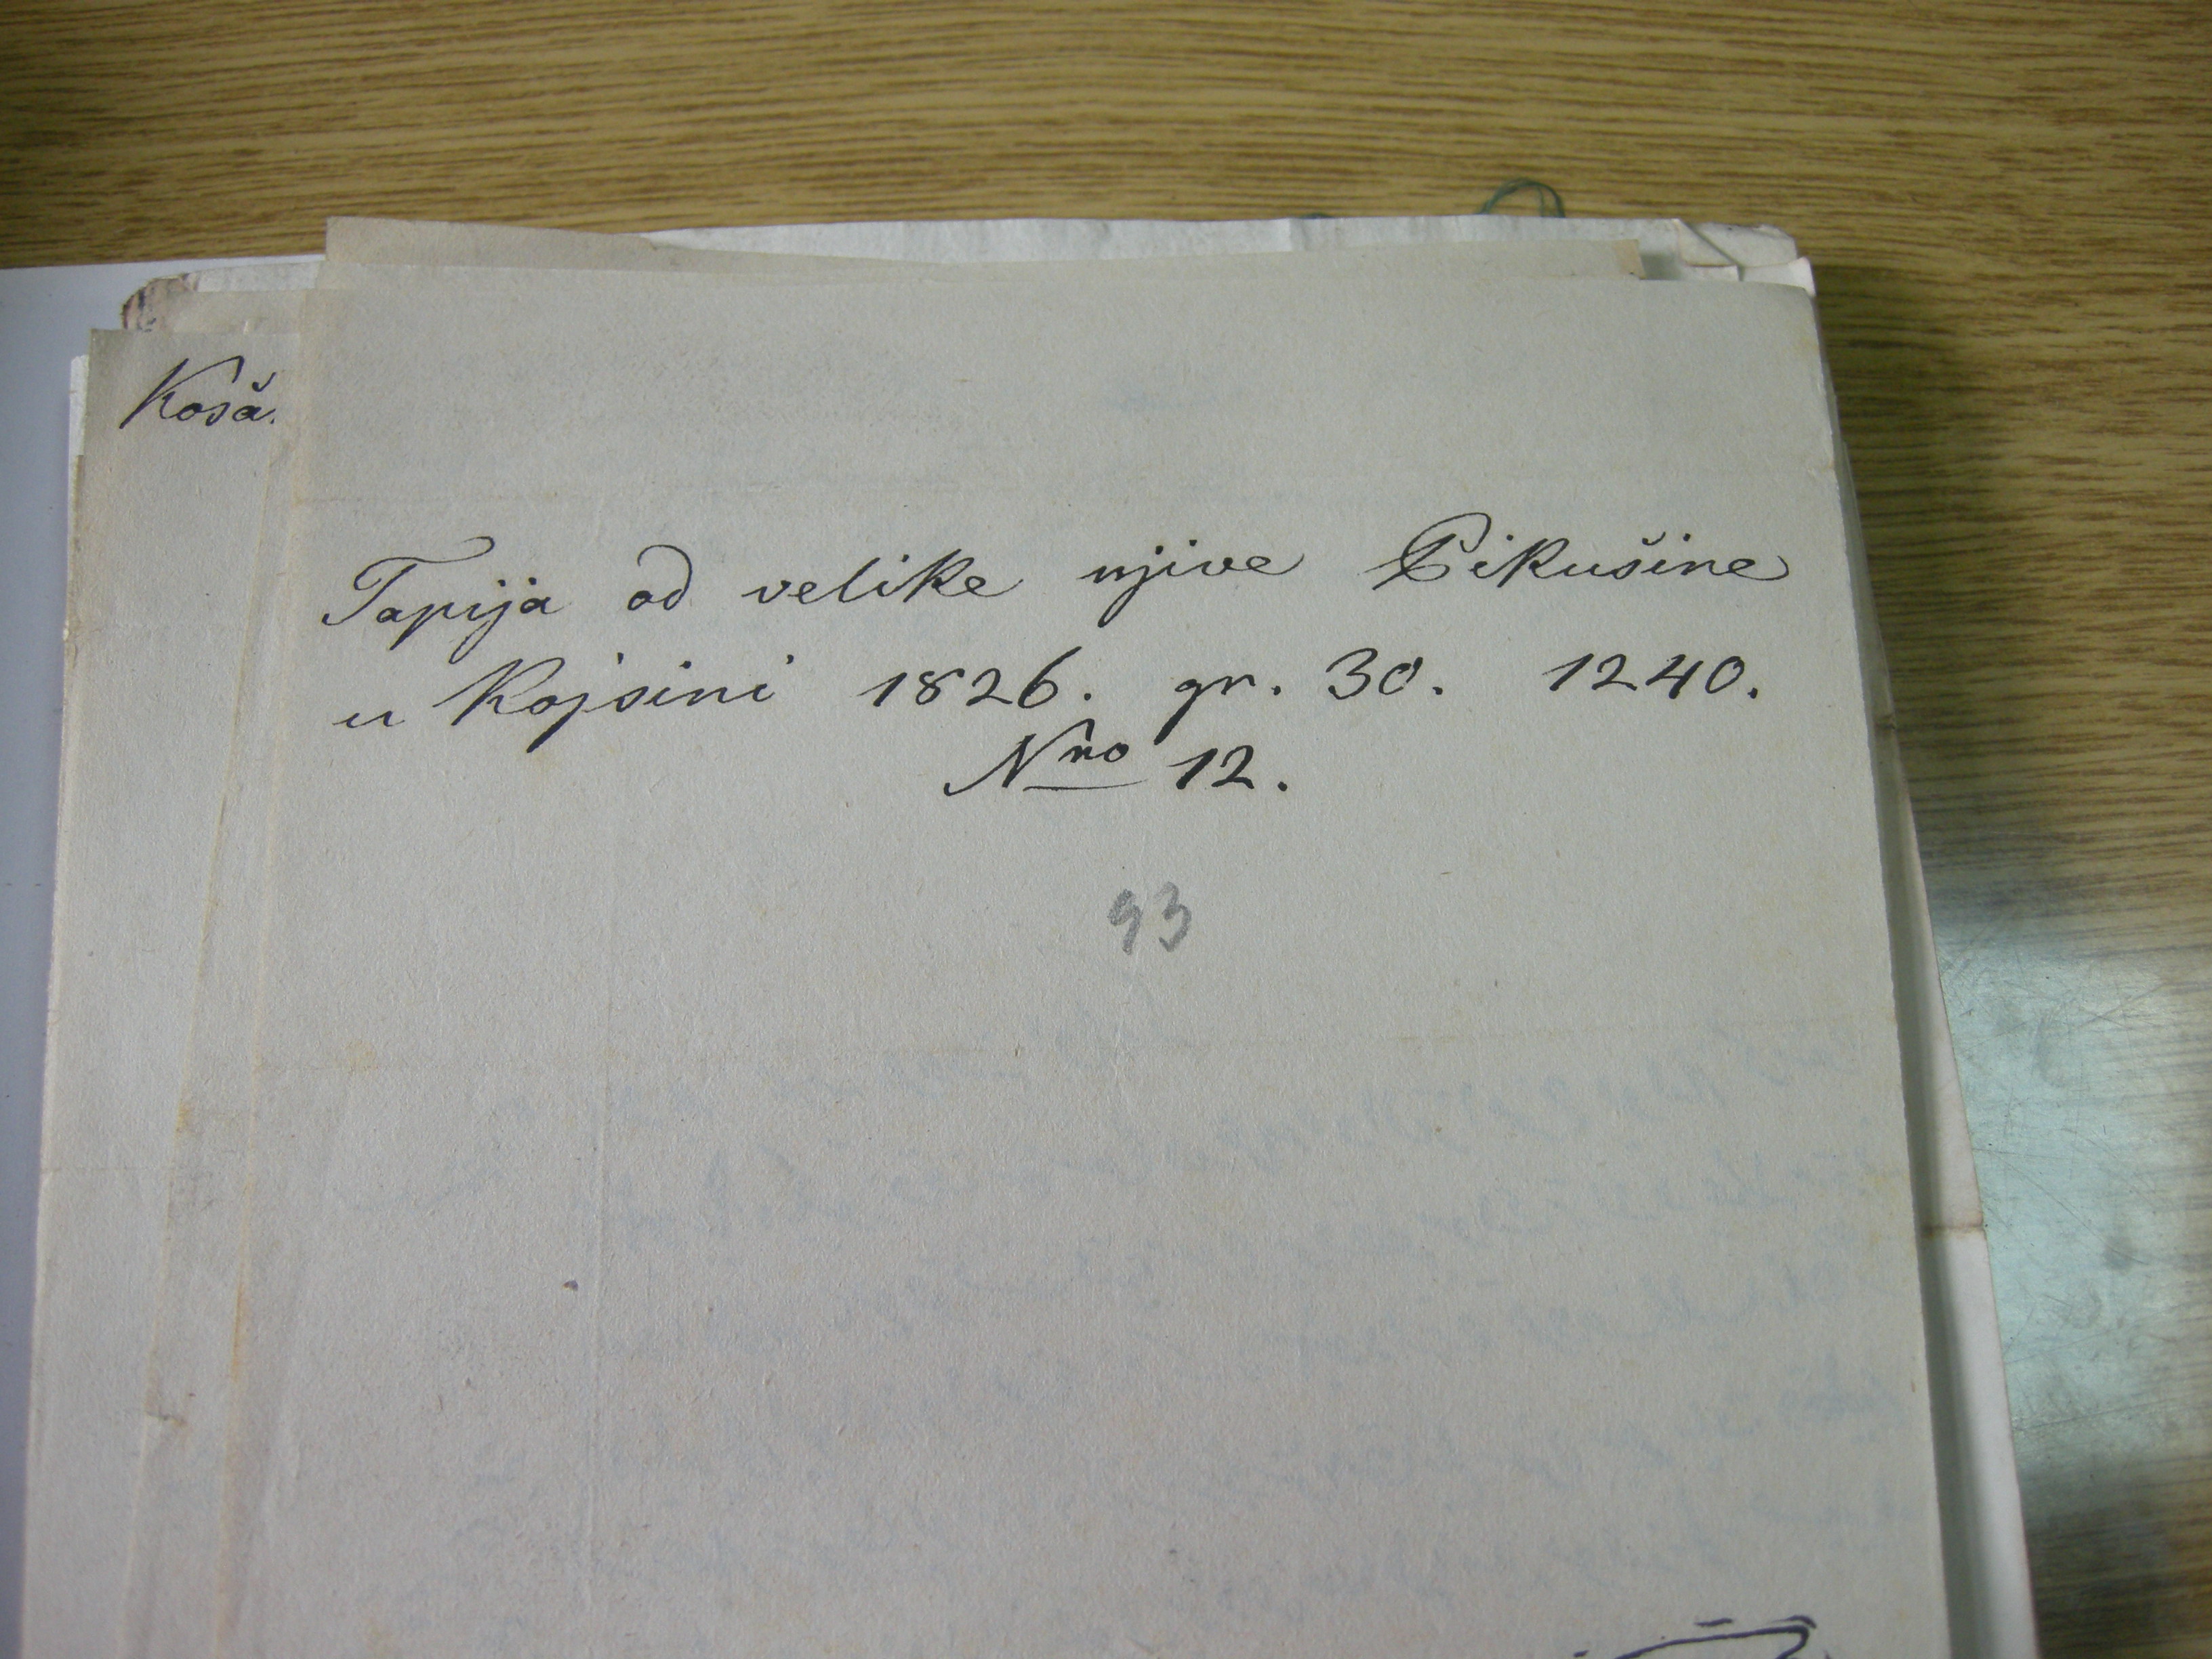 Koša.
Tapija od velike njive Pikušine
u Kojsini 1826. gr. 30. 1240.
Nro 12.
93